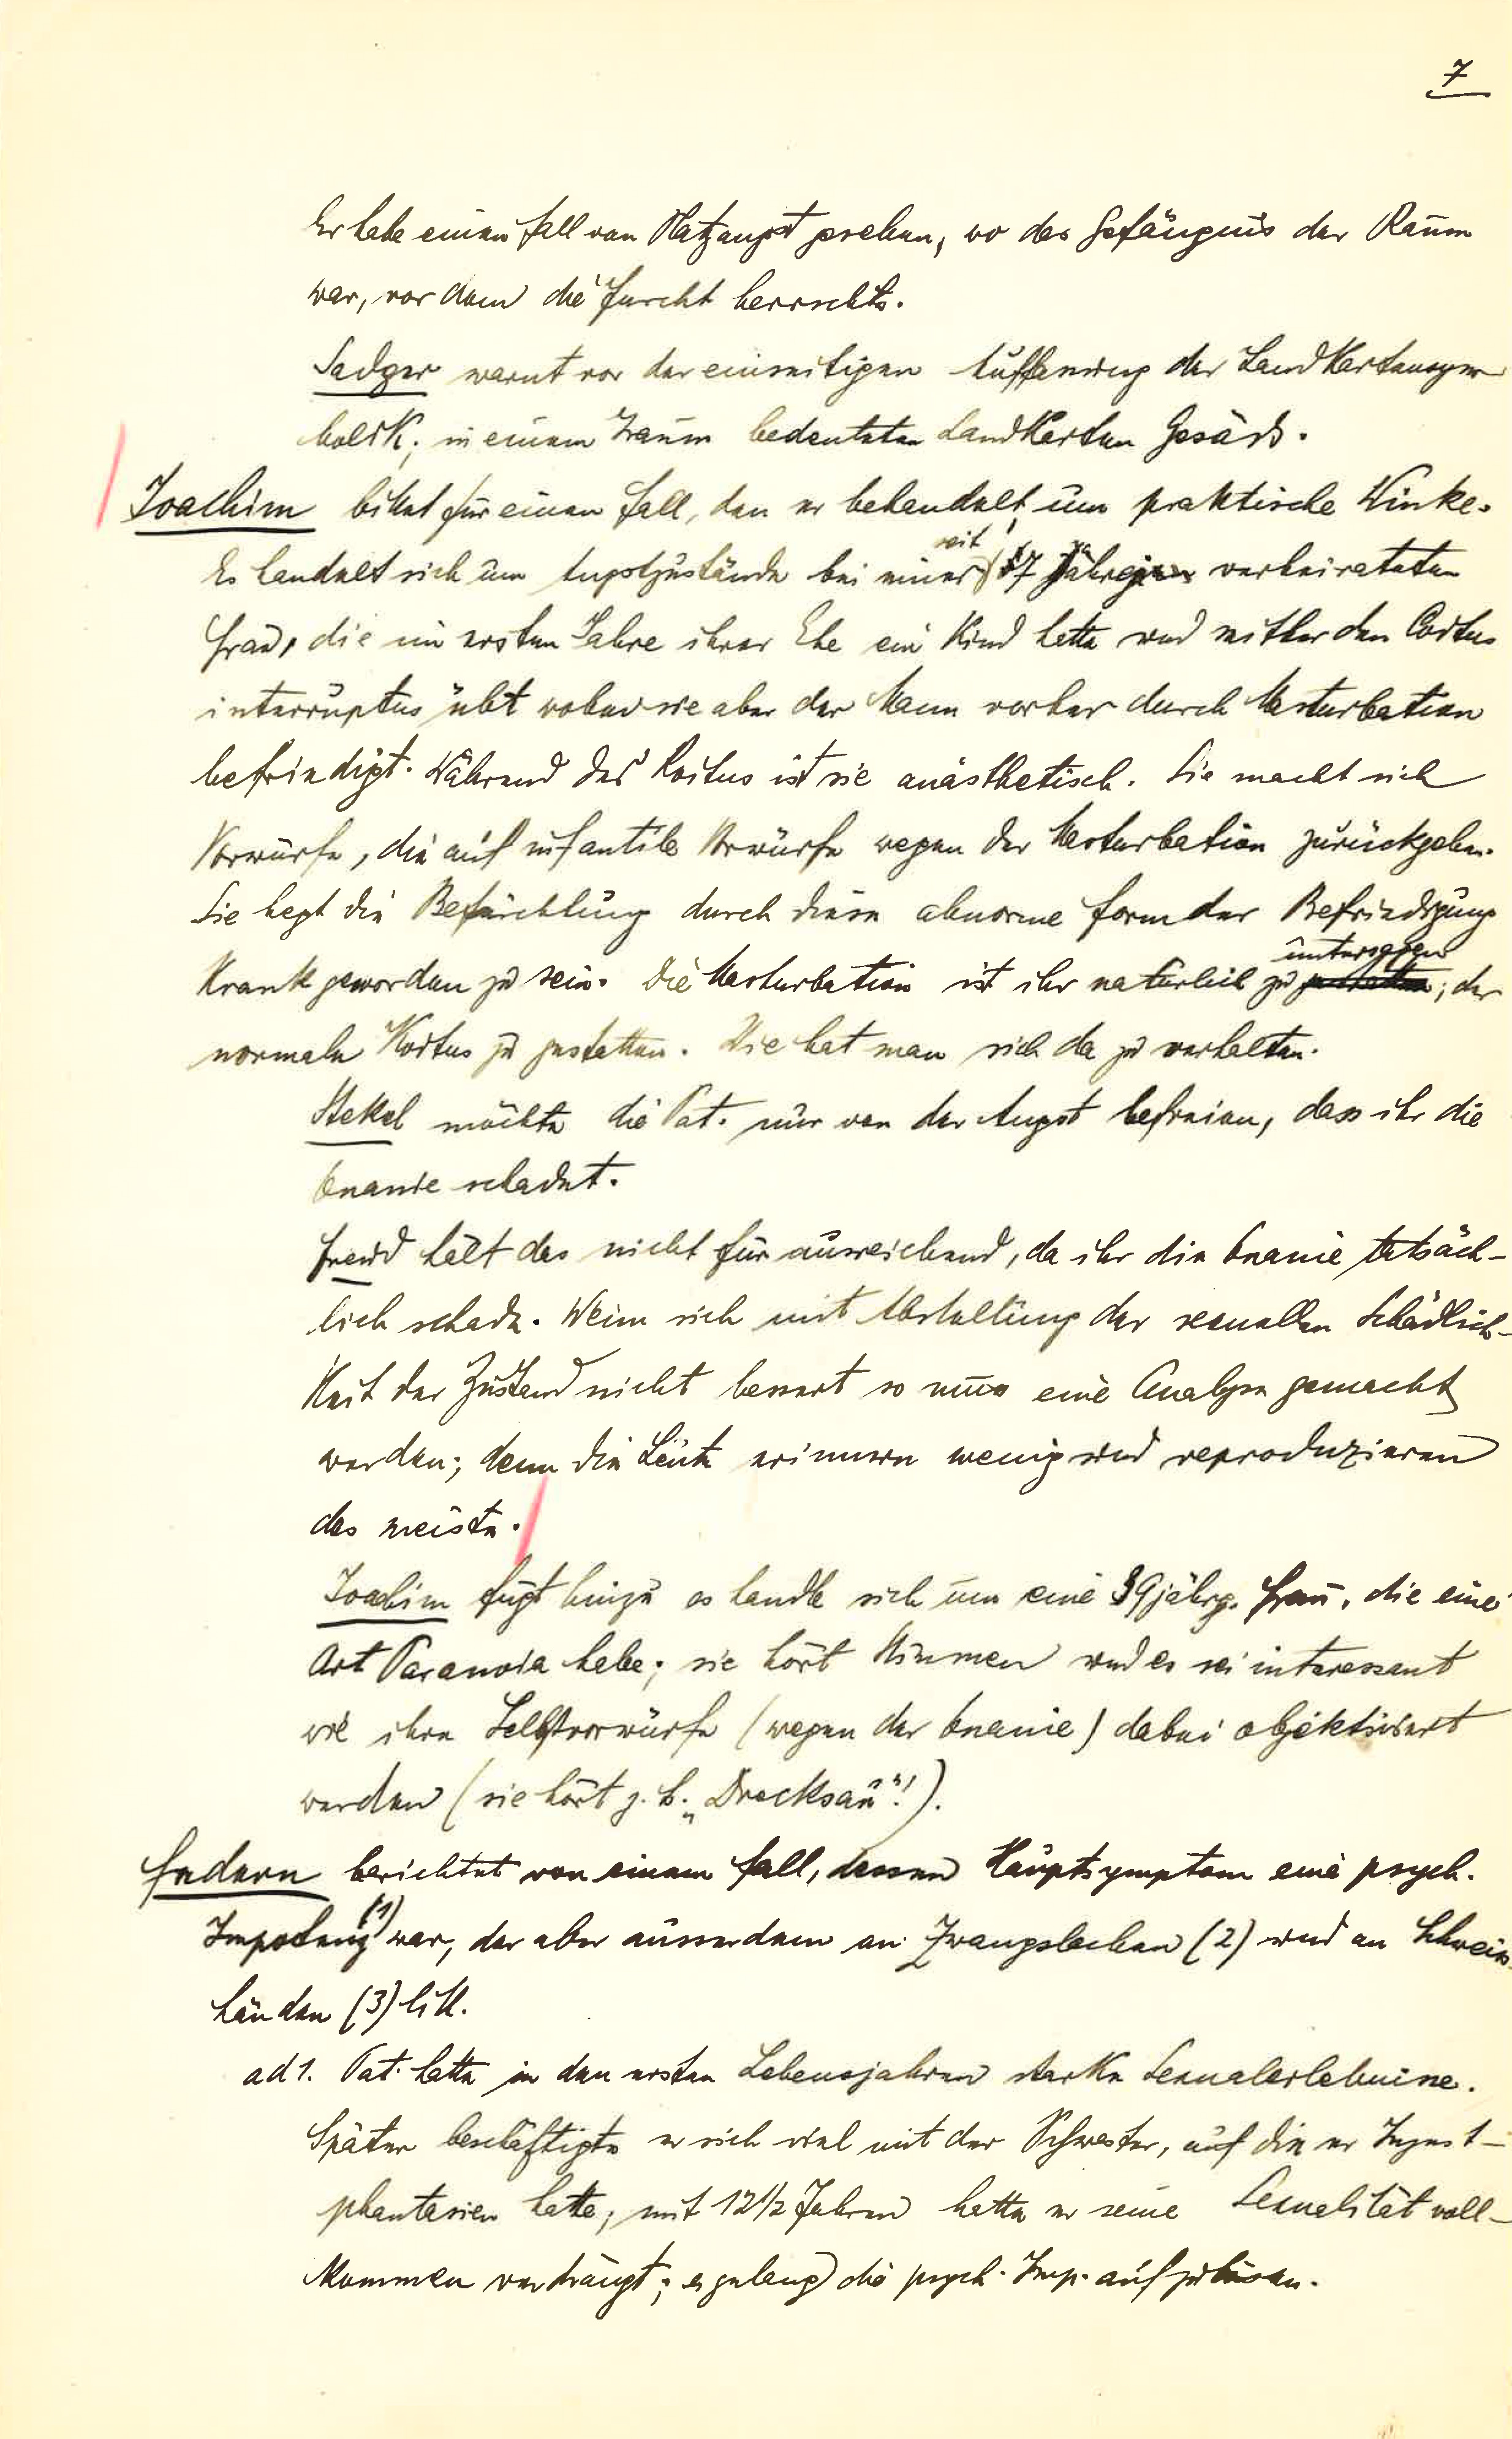 7
Er habe einen Fall von Platzangst gesehen, wo das Gefängnis der Raum
war, vor dem die Furcht herrschte.
Sadger warnt vor der einseitigen Auffassung der Landkartensym-
bolik; in einem Traum bedeuteten Landkarten Gesäss.
Joachim bittet für einen Fall, den er behandelt, um praktische Winke.
Es handelt sich um Angstzustände bei einer seit 7 Jahren verheirateten
Frau, die im ersten Jahre ihrer Ehe ein Kind hatte und seither den Coitus
interruptus übt wobei sie aber der Mann vorher durch Masturbation
befriedigt. Während des Koitus ist sie anästhetisch. Sie macht sich
Vorwürfe, die auf infantile Vorwürfe wegen der Masturbation zurückgehen.
Sie hegt die Befürchtung durch diese abnorme Form der Befriedigung
krank geworden zu sein. Die Masturbation ist ihr natürlich zu untersagen; der
normale Koitus zu gestatten. Wie hat man sich da zu verhalten.
Stekel möchte die Pat. nur von der Angst befreien, dass ihr die
Onanie schadet.
Freud hält das nicht für ausreichend, da ihr die Onanie tatsäch-
lich schade. Wenn sich mit Abstellung der sexuellen Schädlich-
keit der Zustand nicht bessert so muss eine Analyse gemacht
werden; denn die Leute erinnern wenig und reproduzieren
das meiste.
Joachim fügt hinzu es handle sich um eine 39jährg. Frau, die eine
Art Paranoia habe; sie hört Stimmen und es sei interessant
wie ihre Selbstvorwürfe (wegen der Onanie) dabei objektiviert
werden (sie hört z. B. „Drecksau"!).
Federn berichtet von einem Fall, dessen Hauptsymptom eine psych.
Impotenz (1) war, der aber ausserdem an Zwangslachen (2) und an Schweiss-
händen (3) litt.
ad 1. Pat. hatte in den ersten Lebensjahren starke Sexualerlebnisse.
Später beschäftigte er sich viel mit der Schwester, auf die er Inzest-
phantasien hatte; mit 12 1/2 Jahren hatte er seine Sexualität voll-
kommen verdrängt; es gelang die psych. Imp. aufzulösen.